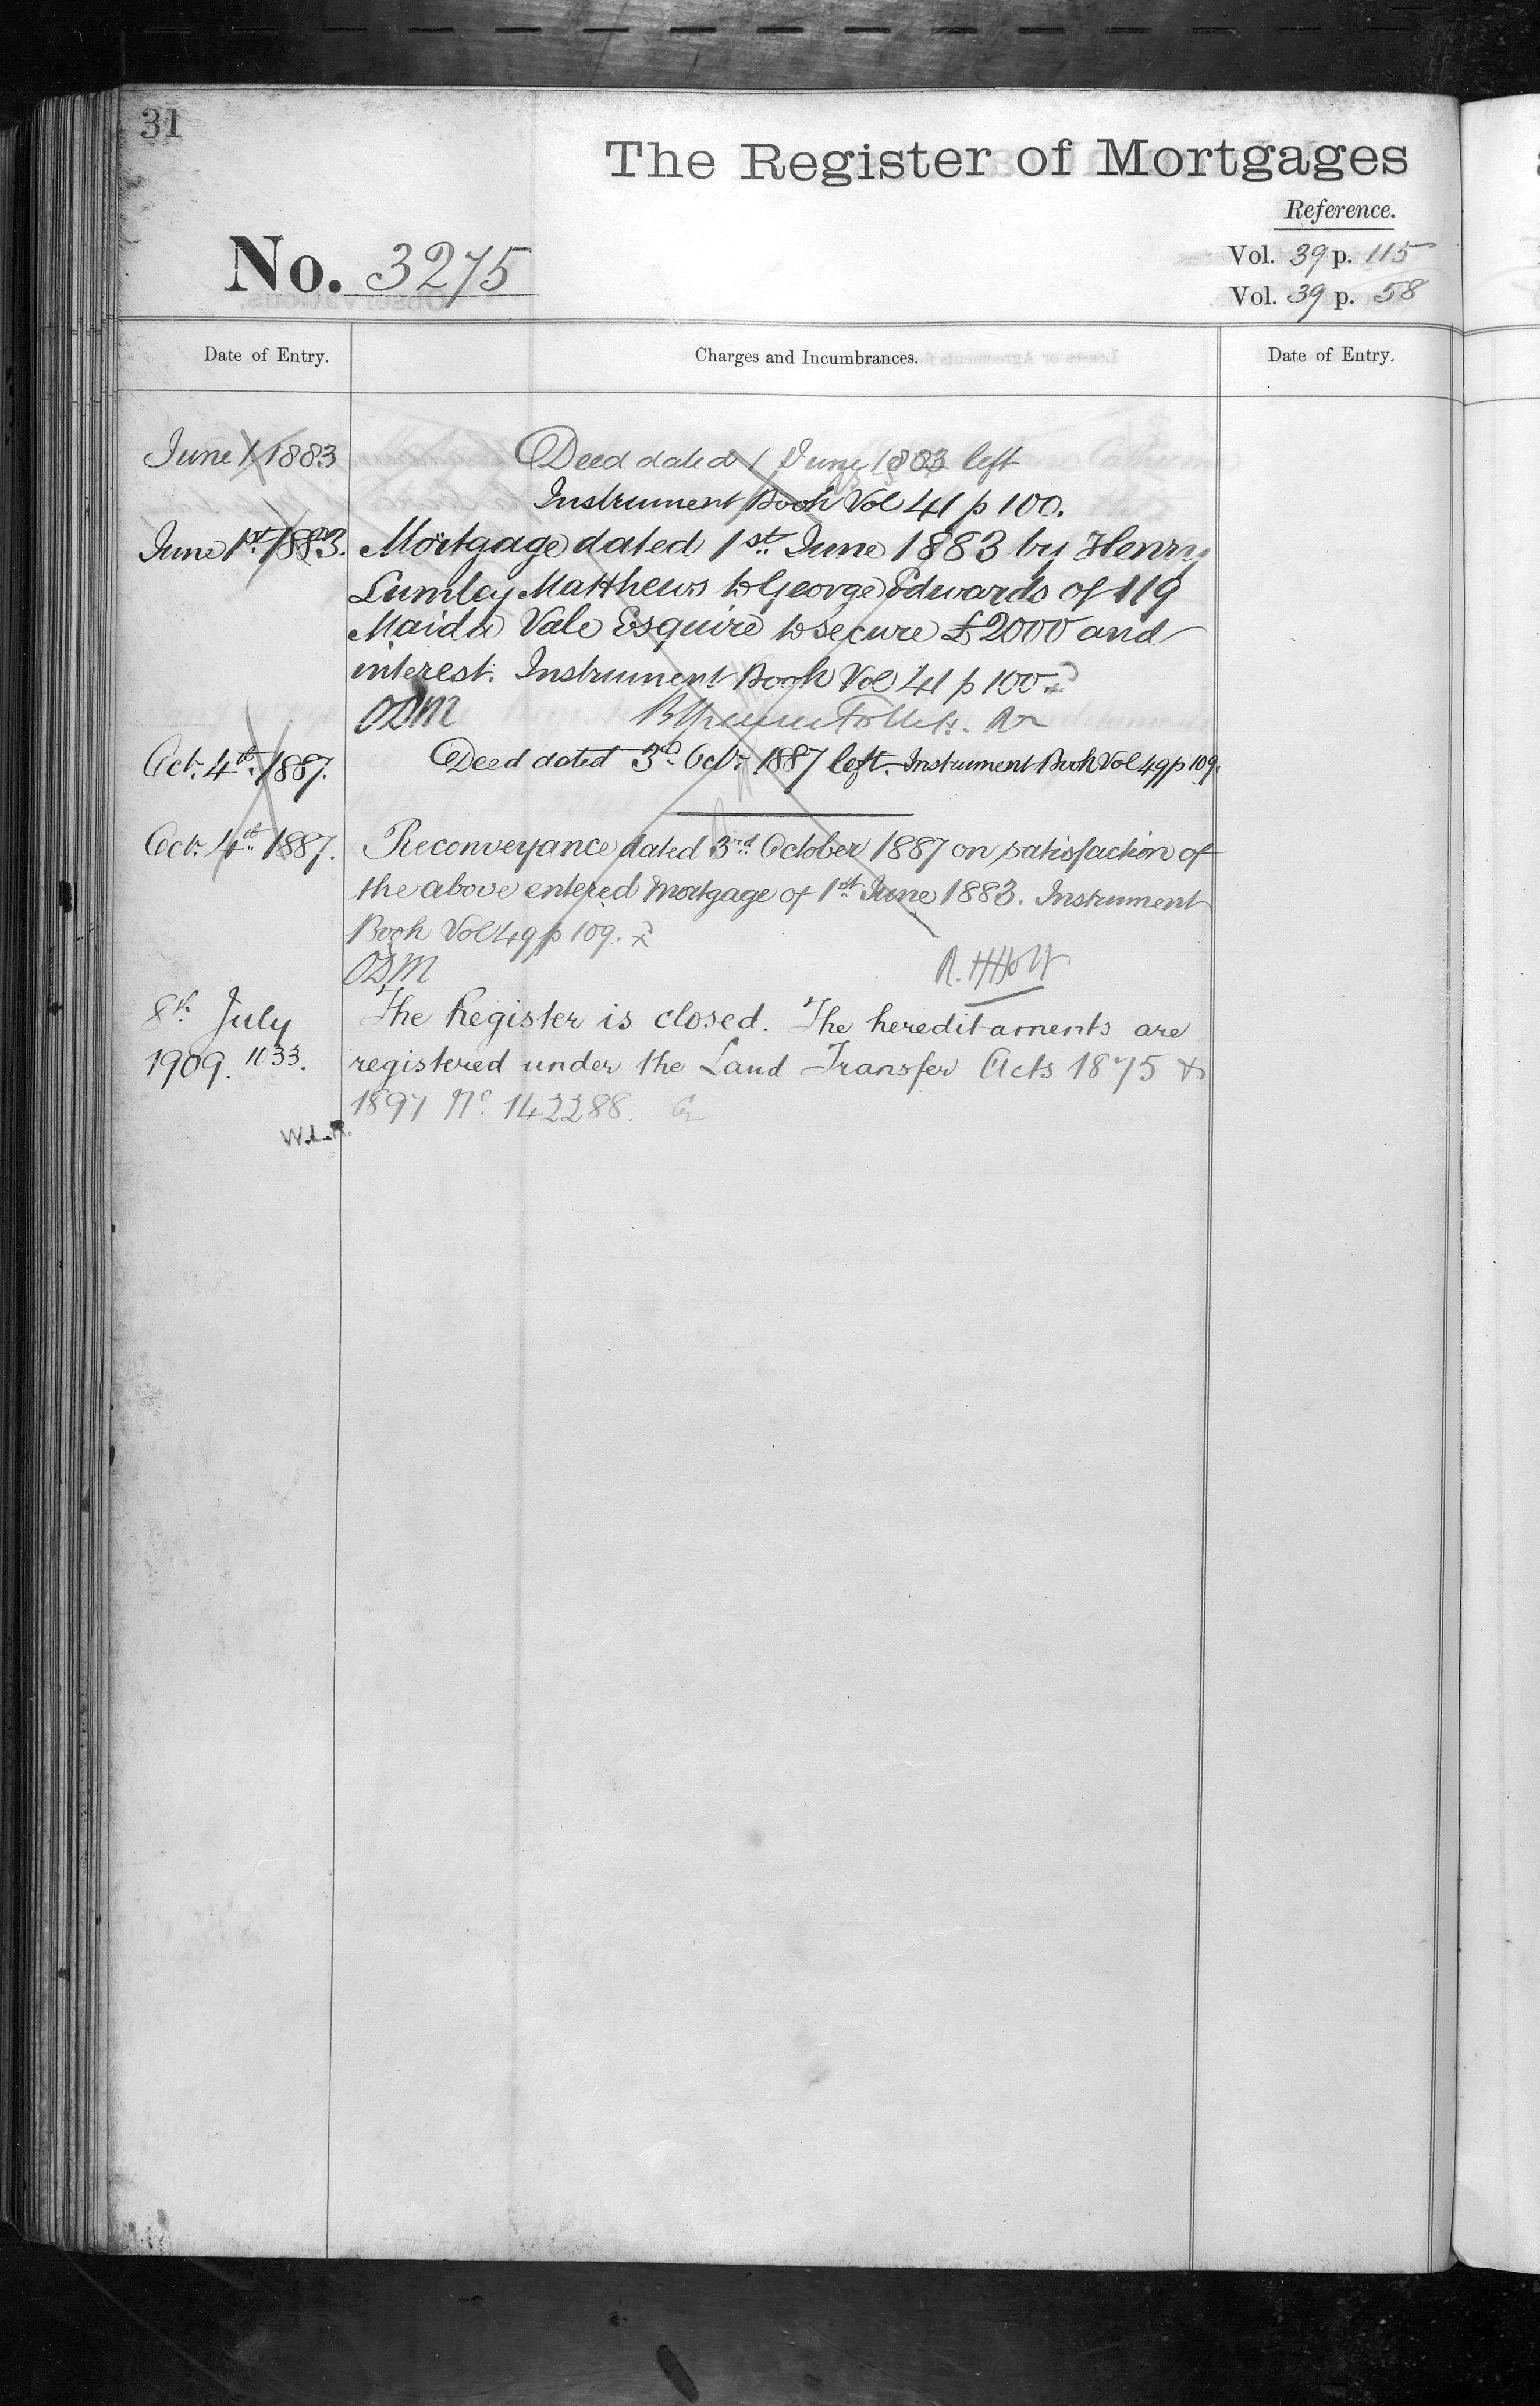 31
The Register of Mortgages
Reference.
No. 3275
Vol. 39 p. 115
Vol. 39 p. 58
Date of Entry.
Charges and Incumbrances.
Date of Entry.
June 1. 1883
Deed dated 1 June 1883 left
Instrument Book Vol 41 p 100.
June 1st. 1883.
Mortgage dated 1st. June 1883 by Henry
Lumley Matthews to George Edwards of 119
Maida Vale Esquire to secure £2000 and
interest. Instrument Book Vol 41 p 100.
ODM
Oct. 4th. 1887.
Deed dated 3d. Octr. 1887 left. Instrument Book Vol 49 p 109.
Oct. 4th. 1887.
Reconveyance dated 3rd. October 1887 on satisfaction of
the above entered Mortgage of 1st. June 1883. Instrument
Book Vol 49 p 109.
ODM
R. H Holt
8th. July
1909. 1033.
The Register is closed. The hereditaments are
registered under the Land Transfer Acts 1875 &
1897 No. 142288.
W.L.R.